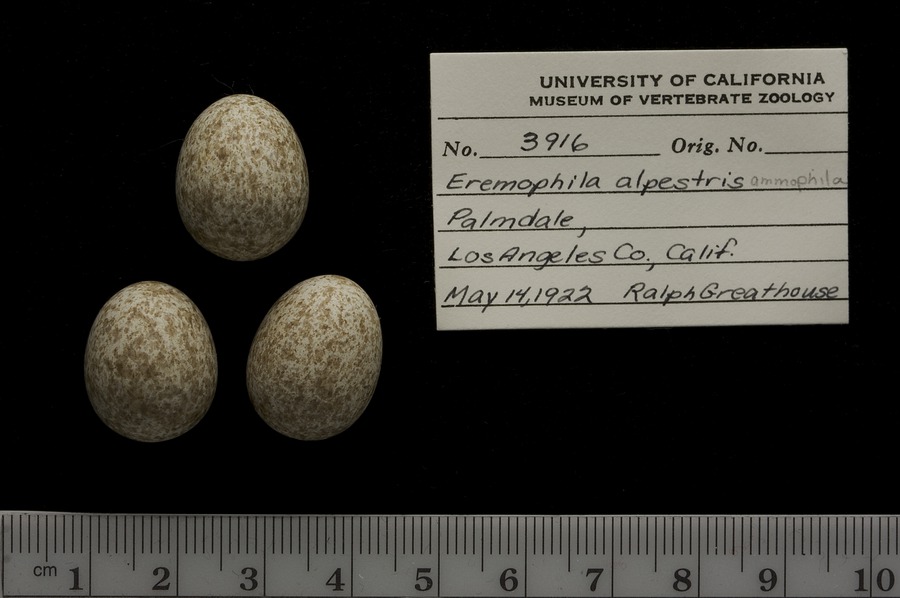 UNIVERSITY OF CALIFORNIA
MUSEUM OF VERTEBRATE ZOOLOGY
No. 3916 Orig. No.
Eremophila alpestris ammophila
Palmdale,
Los Angeles Co., Calif.
May 14, 1922 Ralph Greathouse
cm 1 2 3 4 5 6 7 8 9 10